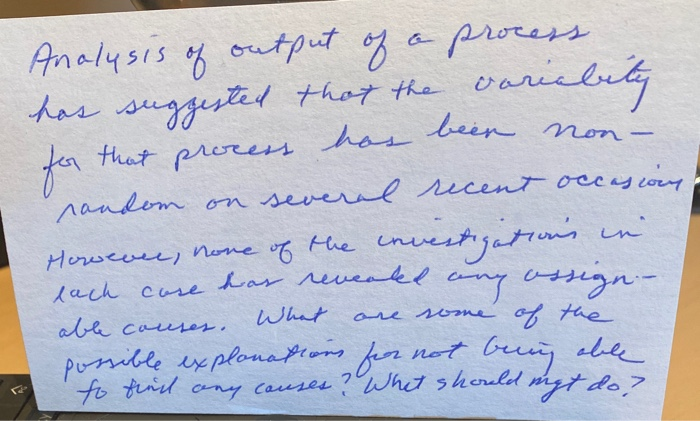 Analysis of output of a process
has suggested that the variability
for that process has been non-
random on several recent occasions
However, none of the investigations in
each case has revealed any assign-
able causes. What are some of the
possible explanations for not being able
to find any causes? What should mgt do?